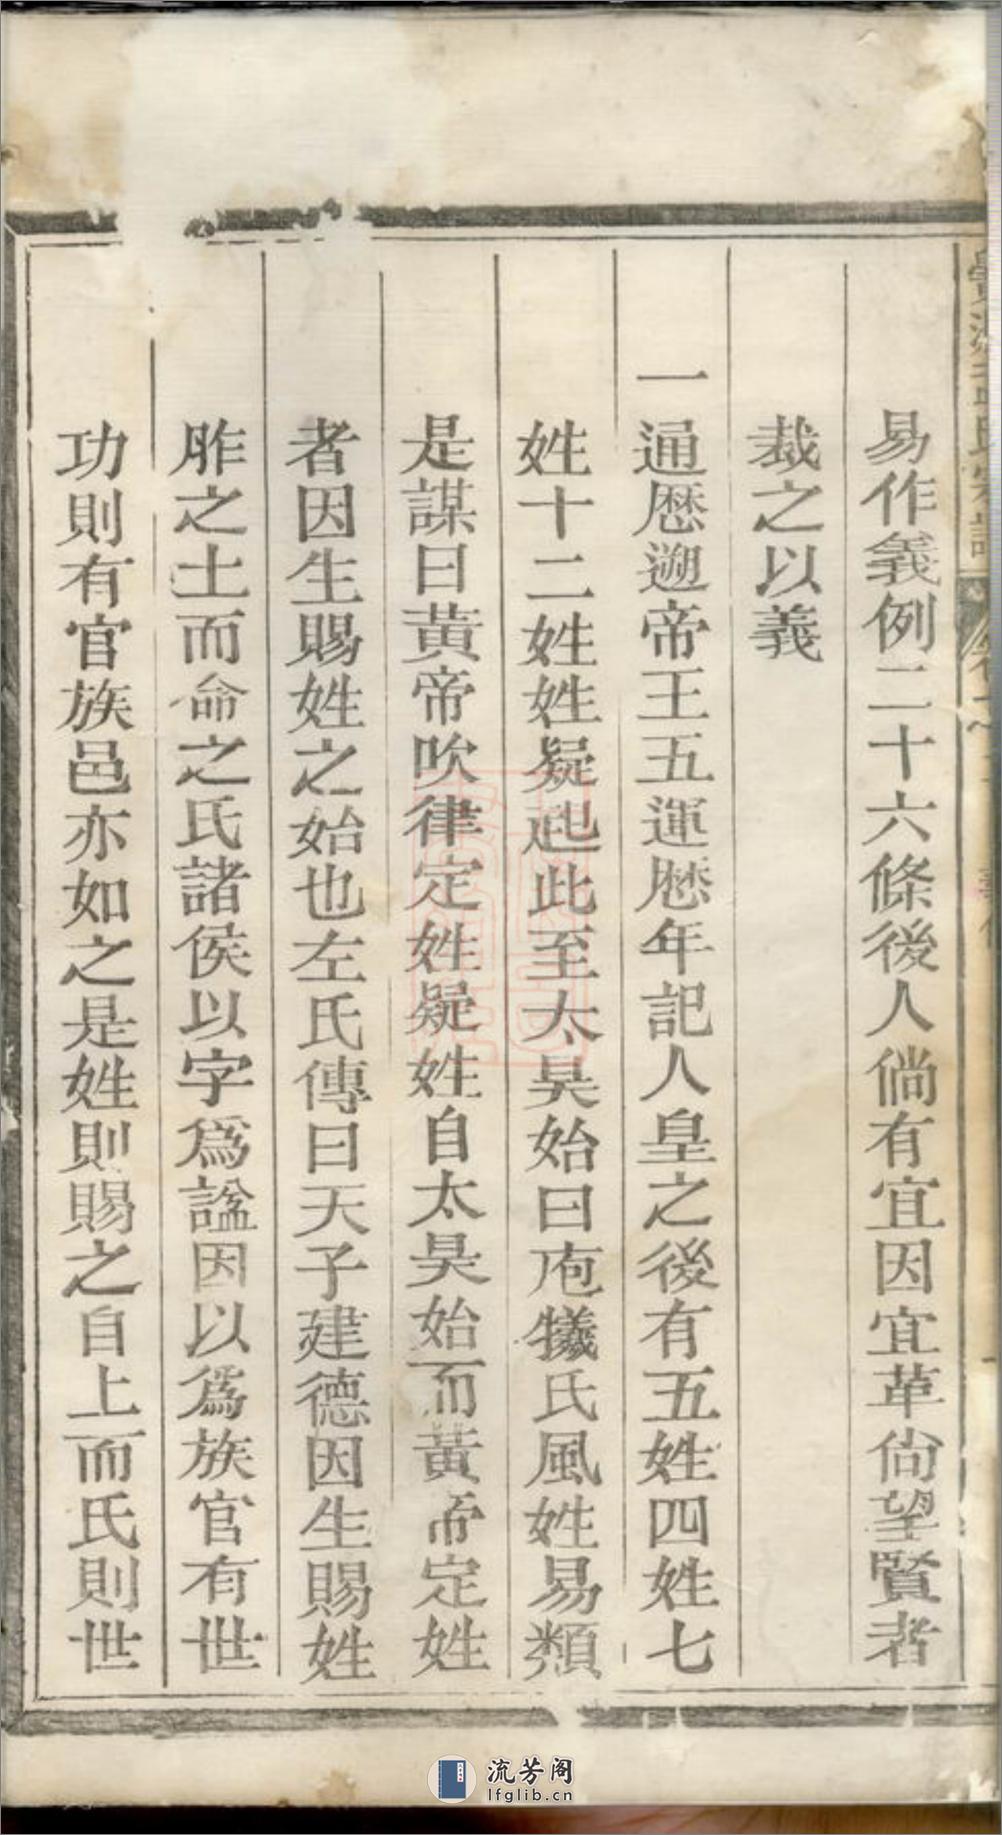 易作義例二十六條後人倘有宜因宜革尙望賢者
裁之以義
一通歷遡帝王五運歷年記人皇之後有五姓四姓七
姓十二姓姓疑起此至太昊始曰庖犧氏風姓易類
是謀曰黃帝吹律定姓疑姓自太昊始而黃帝定姓
者因生賜姓之始也左氏傳曰天子建德因生賜姓
胙之土而命之氏諸侯以字爲謚因以爲族官有世
功則有官族邑亦如之是姓則賜之自上而氏則世
流芳阁
lfglib.cn